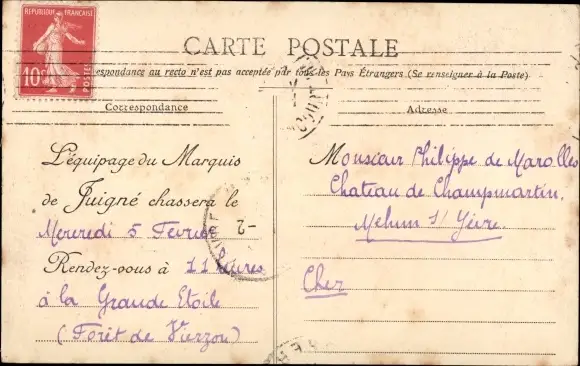 RÉPUBLIQUE FRANÇAISE
10c
POSTES
CARTE POSTALE
La Correspondance au recto n'est pas acceptée par tous les Pays Étrangers (Se renseigner à la Poste)
Correspondance
L'équipage du Marquis
de Juigné chassera le
Mercredi 5 Fevrier
Rendez-vous à 11 heures
à la Grande Etoile
(Forêt de Vierzon)
-2
Adresse
Monsieur Philippe de Marolles
Chateau de Champmartin,
Mehun s/ Yèvre.
Cher